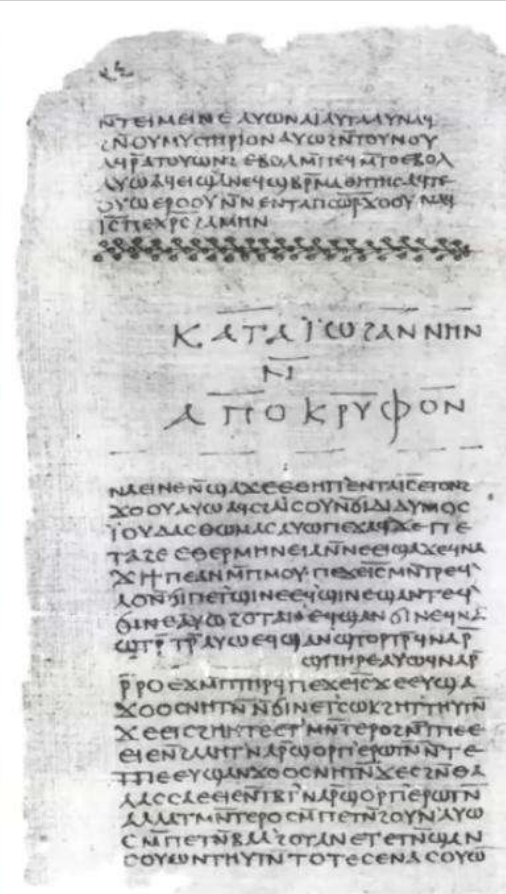 ⲛ̄ⲧⲉⲓⲙⲉⲓⲛⲉⲁⲩⲱⲛⲁⲓⲁⲩⲧⲁⲁⲩⲛⲁϥ
ϩⲛ̄ⲟⲩⲙⲩⲥⲧⲏⲣⲓⲟⲛⲁⲩⲱϩⲛ̄ⲧⲟⲩⲛⲟⲩ
ⲁϥⲣ̄ⲁⲧⲟⲩⲱⲛϩⲉⲃⲟⲗⲙ̄ⲡⲉϥⲙ̄ⲧⲟⲉⲃⲟⲗ
ⲁⲩⲱⲁϥⲉⲓϣⲁⲛⲉϥϣⲃⲣ̄ⲙⲁⲑⲏⲧⲏⲥⲁϥⲧⲉ
ⲟⲩⲱⲉⲣⲟⲟⲩⲛ̄ⲛⲉⲛⲧⲁⲡⲥⲱ̄ⲣ̄ϫⲟⲟⲩⲛⲁϥ
ⲓ̄ⲥ̄ⲡⲉⲭⲣ̄ⲥ̄ϩⲁⲙⲏⲛ
ⲕⲁⲧⲁⲓ̈ⲱϩⲁⲛⲛⲏⲛ
ⲛ̄
ⲁⲡⲟⲕⲣⲩⲫⲟⲛ
ⲛⲁⲉⲓⲛⲉⲛ̄ϣⲁϫⲉⲉⲑⲏⲡ̓ⲉⲛⲧⲁⲓ̄ⲥ̄ⲉⲧⲟⲛϩ
ϫⲟⲟⲩⲁⲩⲱⲁϥⲥϩⲁⲓ̈ⲥⲟⲩⲛ̄ϭⲓⲇⲓⲇⲩⲙⲟⲥ
ⲓ̈ⲟⲩⲇⲁⲥⲑⲱⲙⲁⲥⲁⲩⲱⲡⲉϫⲁϥϫⲉⲡⲉ
ⲧⲁϩⲉⲉⲑⲉⲣⲙⲏⲛⲉⲓⲁⲛ̄ⲛⲉⲉⲓϣⲁϫⲉϥⲛⲁ
ϫⲓϯⲡⲉⲁⲛⲙ̄ⲡⲙⲟⲩ·ⲡⲉϫⲉⲓ̄ⲥ̄ⲙⲛ̄ⲧⲣⲉϥ̓
ⲗⲟⲛ̄ϭⲓⲡⲉⲧϣⲓⲛⲉⲉϥϣⲓⲛⲉϣⲁⲛⲧⲉϥ̓
ϭⲓⲛⲉⲁⲩⲱϩⲟⲧⲁⲛ̓ⲉϥϣⲁⲛϭⲓⲛⲉϥⲛⲁ
ϣⲧⲣ̄ⲧⲣ̄ⲁⲩⲱⲉϥϣⲁⲛϣⲧⲟⲣⲧⲣ̄ϥⲛⲁⲣ̄
ϣⲡⲏⲣⲉⲁⲩⲱϥⲛⲁⲣ̄
ⲣ̄ⲣⲟⲉϫⲙ̄ⲡⲧⲏⲣϥ̄ⲡⲉϫⲉⲓ̄ⲥ̄ϫⲉⲉⲩϣⲁ
ϫⲟⲟⲥⲛⲏⲧⲛ̄ⲛ̄ϭⲓⲛⲉⲧ̓ⲥⲱⲕϩⲏⲧ̓ⲧⲏⲩⲧⲛ̄
ϫⲉⲉⲓⲥϩⲏⲏⲧⲉⲉⲧ̓ⲙⲛ̄ⲧⲉⲣⲟϩⲛ̄ⲧⲡⲉⲉ
ⲉⲓⲉⲛ̄ϩⲁⲗⲏⲧ̓ⲛⲁⲣ̄ϣⲟⲣⲡ̓ⲉⲣⲱⲧⲛ̄ⲛ̄ⲧⲉ
ⲧⲡⲉⲉⲩϣⲁⲛϫⲟⲟⲥⲛⲏⲧⲛ̄ϫⲉⲥϩⲛ̄ⲑⲁ
ⲗⲁⲥⲥⲁⲉⲉⲓⲉⲛ̄ⲧⲃⲧ̓ⲛⲁⲣ̄ϣⲟⲣⲡ̓ⲉⲣⲱⲧⲛ̄
ⲁⲗⲗⲁⲧⲙⲛ̄ⲧⲉⲣⲟⲥⲙ̄ⲡⲉⲧⲛ̄ϩⲟⲩⲛ̓ⲁⲩⲱ
ⲥⲙ̄ⲡⲉⲧⲛ̄ⲃⲁⲗ̓ϩⲟⲧⲁⲛⲉⲧⲉⲧⲛ̄ϣⲁⲛ
ⲥⲟⲩⲱⲛⲧⲏⲩⲧⲛ̄ⲧⲟⲧⲉⲥⲉⲛⲁⲥⲟⲩⲱ